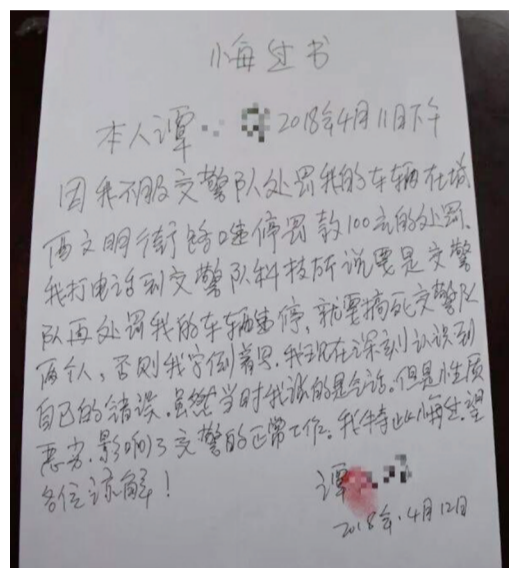 悔过书
本人谭 2018年4月11日下午
因我不服交警队处罚我的车辆在城
西文明街路口违停罚款100元的处罚,
我打电话到交警队科技所说要是交警
队再处罚我的车辆违停,就要搞死交警队
两个人,否则我字倒着写.我现在深刻认识到
自己的错误.虽然当时我说的是气话.但是性质
恶劣.影响了交警的正常工作.我特此悔过.望
各位谅解!
谭
2018年.4月12日